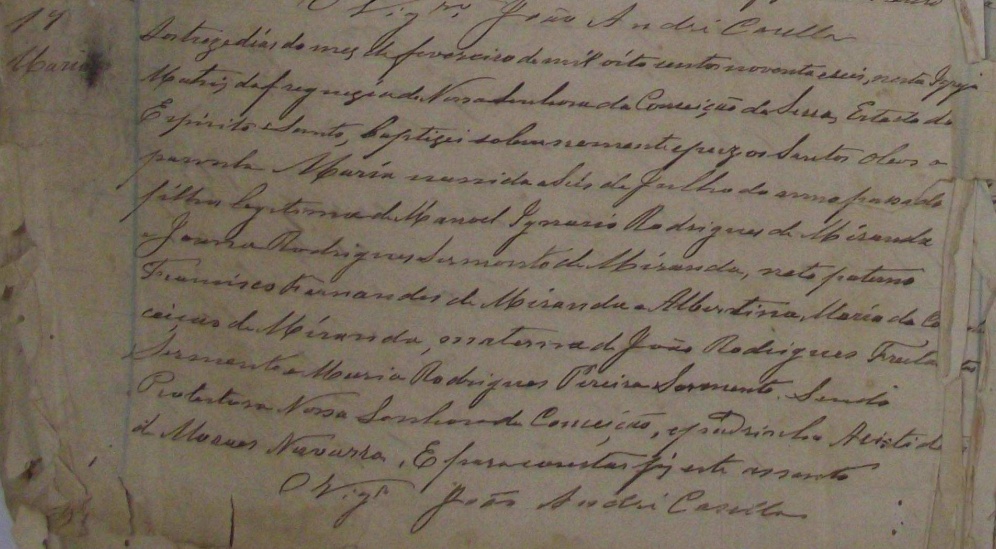 O Vigrº João André Casella
17
Maria
Aos treze dias do mez de fevereiro de mil oito centos noventa e seis, nesta Igreja
Matriz da freguezia de Nossa Senhora da Conceição da Serra, Estado do
Espirito Santo, baptizei solemnemente e puz os Santos oleos a
parvula Maria nascida a seis de Julho do anno passado
filha legitima de Manoel Ignacio Rodrigues de Miranda
e Joana Rodrigues Sarmento de Miranda, neto paterno
Francisco Fernandes de Miranda e Albertina Maria da Con
ceição de Miranda, materna de João Rodrigues Freitas
Sarmento e Maria Rodrigues Pereira Sarmento. Sendo
Protectora Nossa Senhora da Conceição, e padrinho Aristide
de Moraes Navarro. E para constar fiz este assento
O Vigrº João André Casella